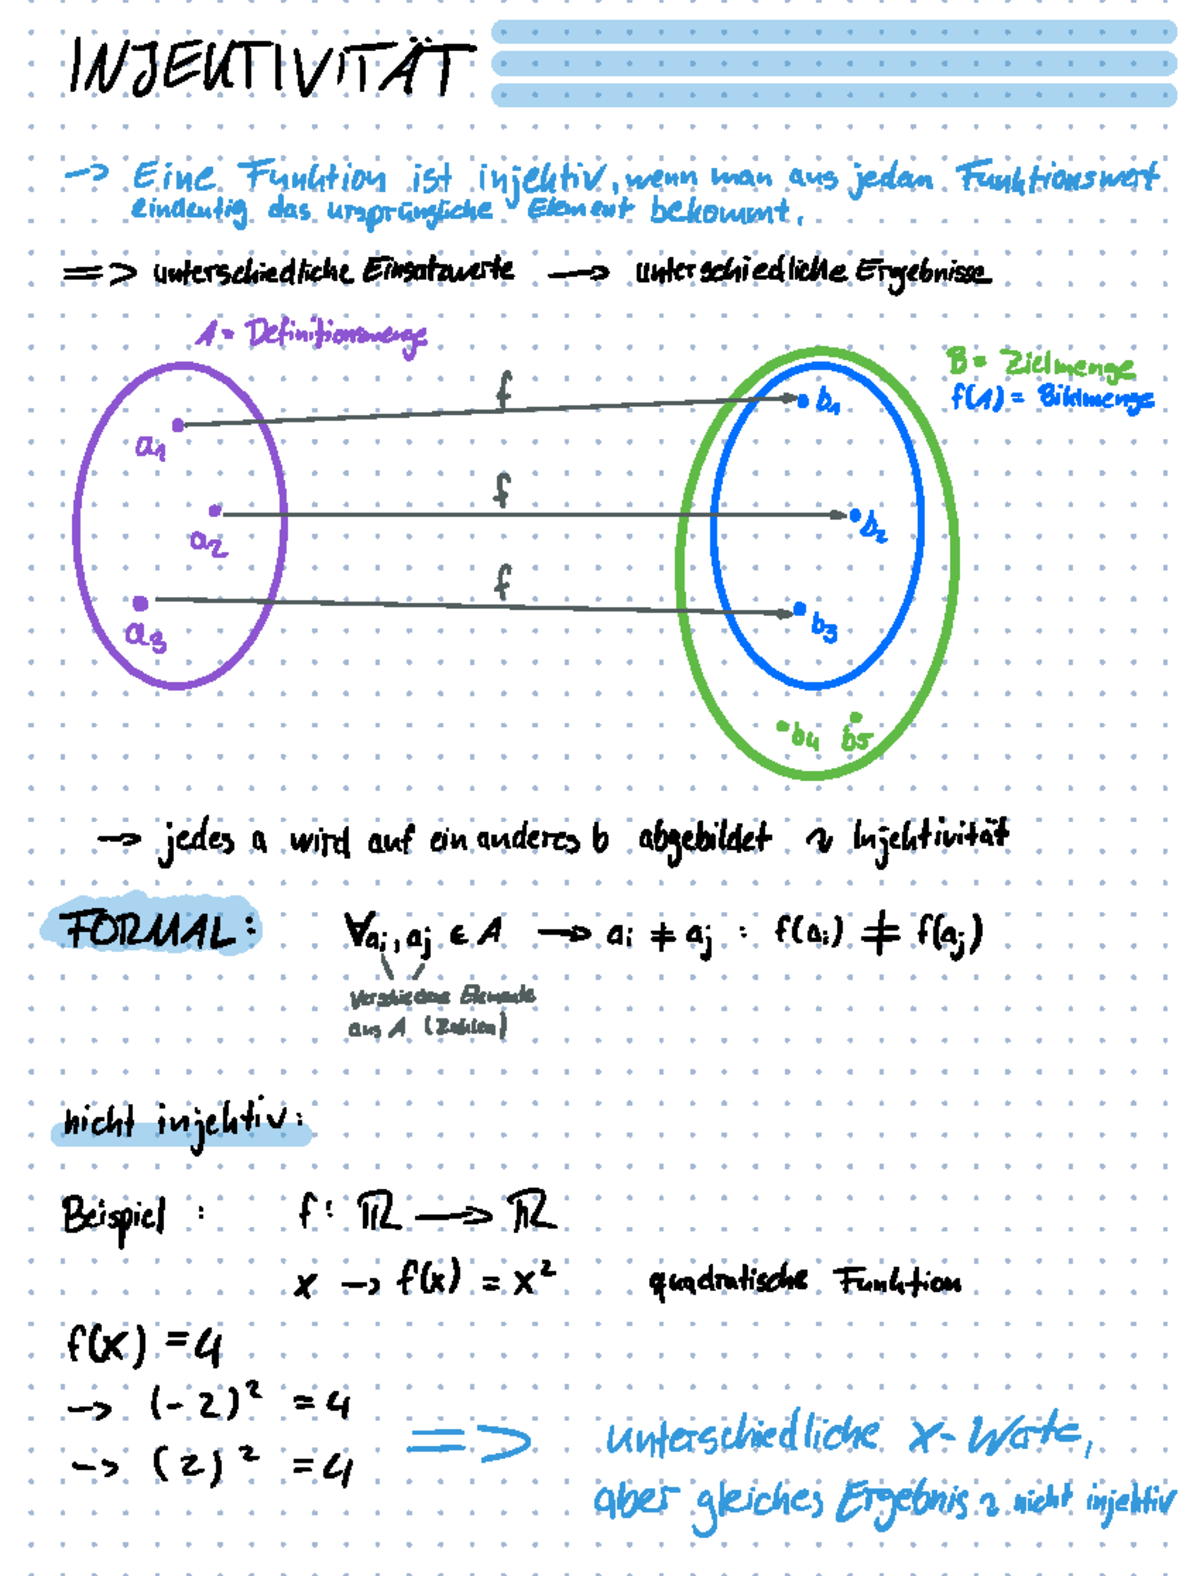 INJEKTIVITÄT
→ Eine Funktion ist injektiv, wenn man aus jedem Funktionswert
eindeutig das ursprüngliche Element bekommt.
=> unterschiedliche Einsatzwerte → unterschiedliche Ergebnisse
A = Definitionsmenge
B = Zielmenge
f(A) = Bildmenge
f
b₁
a₁
f
b₂
a₂
f
b₃
a₃
b₄ b₅
→ jedes a wird auf ein anderes b abgebildet ↝ Injektivität
FORMAL: ∀aᵢ, aⱼ ∈ A → aᵢ ≠ aⱼ : f(aᵢ) ≠ f(aⱼ)
Verschiedene Elemente
aus A (Zahlen)
nicht injektiv:
Beispiel : f: ℝ → ℝ
x → f(x) = x² quadratische Funktion
f(x) = 4
→ (-2)² = 4
→ (2)² = 4
=> unterschiedliche x-Werte,
aber gleiches Ergebnis ↝ nicht injektiv